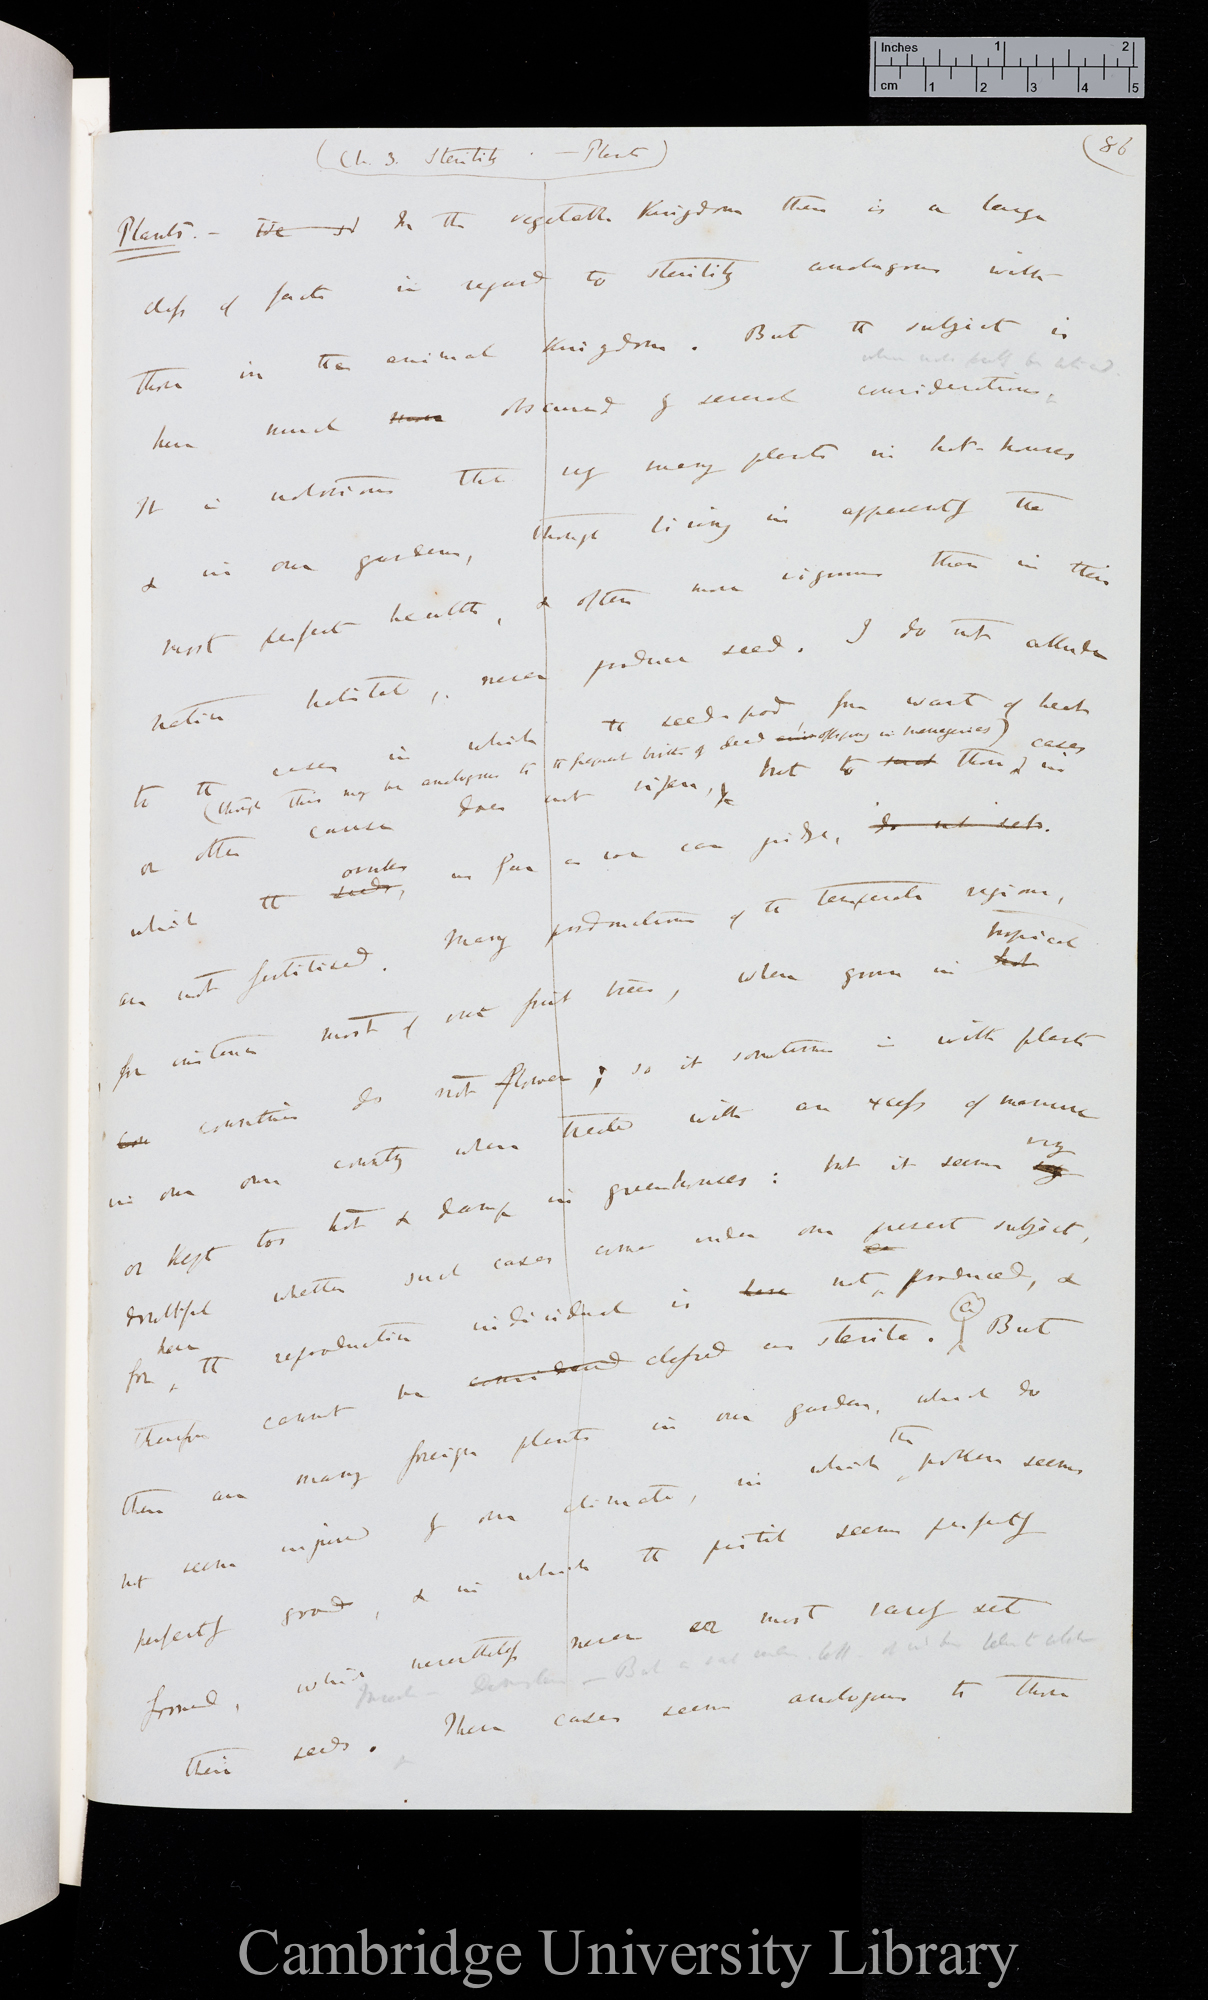 Inches 1 2
cm 1 2 3 4 5
(Ch. 3. Sterility. — Plants)
(86
Plants. — In the vegetable Kingdom there is a large
class of facts in regard to sterility analogous with
those in the animal Kingdom. But the subject is
here much more obscured by several considerations,
when
It is notorious that very many plants in hot-houses
& in our gardens, though living in apparently the
most perfect health, & often more vigorous than in their
native habitat, never produce seed. I do not allude
to the cases in which the seed-pod from want of heat
(though this may be analogous to the frequent birth of dead offspring in menageries)
or other cause does not ripen, but to such those cases in
which the seeds, ovules as far as one can judge, do not set.
are not fertilised. Many productions of the temperate regions,
for instance most of our fruit trees, when grown in hot tropical
countries do not flower; so it sometimes is with plants
in our own country when treated with an excess of manure
or kept too hot & damp in greenhouses: but it seems very
doubtful whether such cases come under our present subject,
for here the reproductive individual is not produced, &
therefore cannot be considered classed as sterile. (a) But
there are many foreign plants in our gardens, which do
not seem injured by our climate, in which the pollen seems
perfectly good, & in which the pistil seems perfectly
formed, which nevertheless never or most rarely set
But
their seeds. These cases seem analogous to those
Cambridge University Library